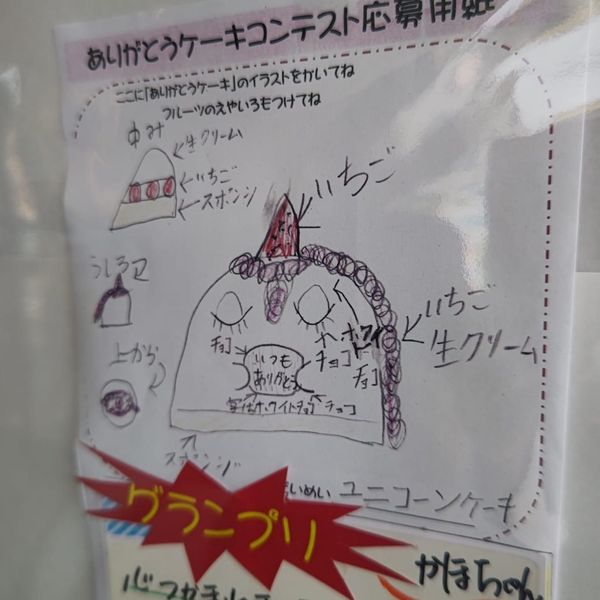 ありがとうケーキコンテスト応募用紙
ここに「ありがとうケーキ」のイラストをかいてね
フルーツのえやいろもつけてね
中み
生クリーム
いちご
スポンジ
いちご
うしろ
いちご
生クリーム
上から
ホワイト
チョコ
チョコ
チョコ
いつも
ありがとう
ホワイトチョコ
チョコ
スポンジ
だいめい ユニコーンケーキ
グランプリ
かほちゃん